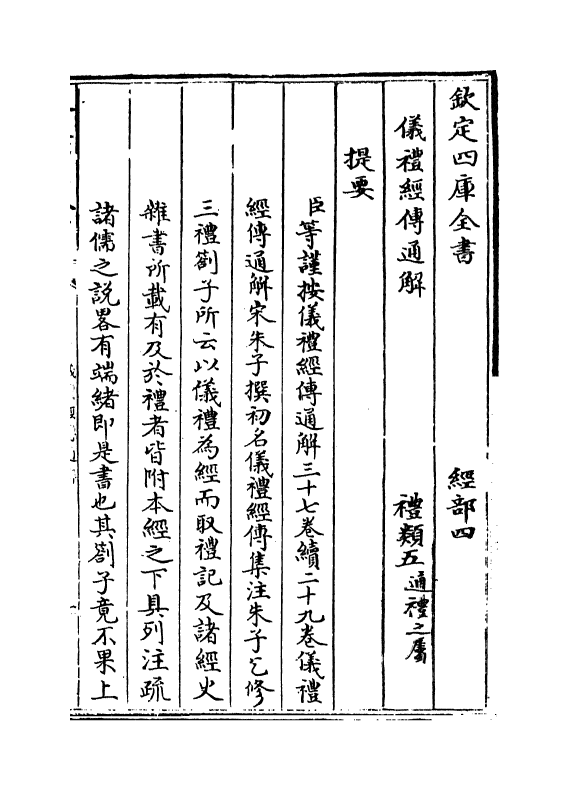 欽定四庫全書　經部四
儀禮經傳通解　禮類五通禮之屬
提要
臣等謹按儀禮經傳通解三十七卷續二十九卷儀禮
經傳通解宋朱子撰初名儀禮經傳集注朱子乞修
三禮劄子所云以儀禮為經而取禮記及諸經史
雜書所載有及於禮者皆附本經之下具列注疏
諸儒之説畧有端緒即是書也其劄子竟不果上